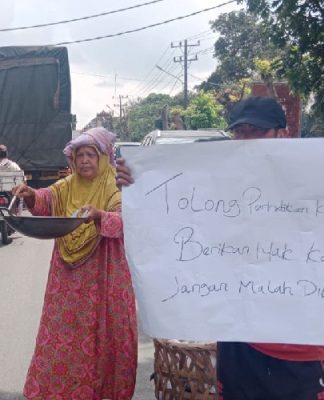 Tolong Perhatikan K
Berikan Hak Ka
Jangan Malah Di